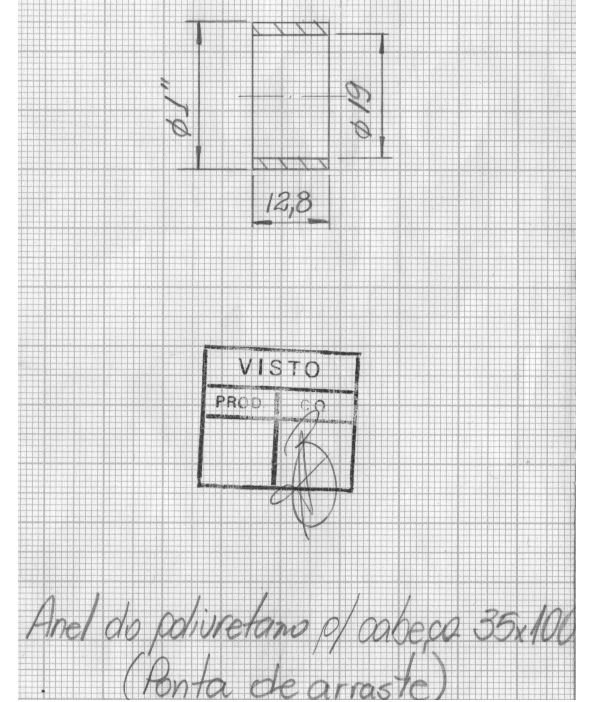 ϕ1"
ϕ19
12,8
VISTO
PROD CQ
Anel do poliuretano p/ cabeça 35x100
(Ponta de arraste)